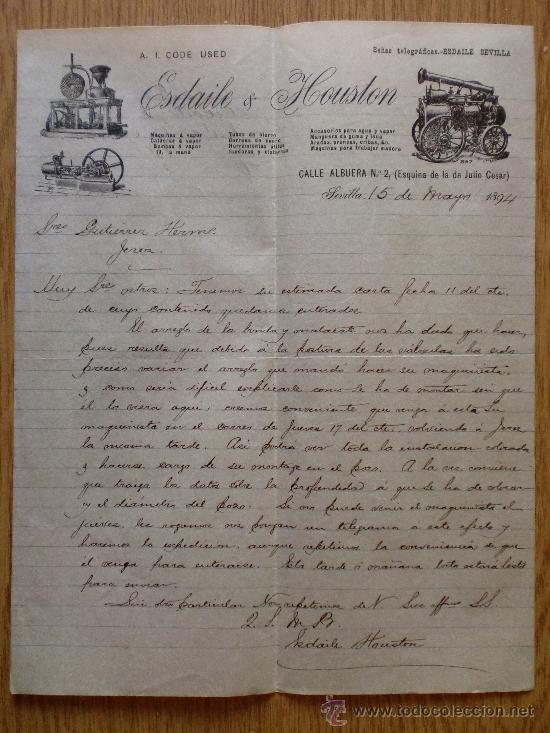 A. I. CODE USED
Señas telegráficas.-ESDAILE SEVILLA
Esdaile & Houston
Máquinas á vapor
Calderas á vapor
Bombas á vapor
Id. á mano
Tubos de hierro
Correas de cuero
Herramientas útiles
Accesorios para agua y vapor
Manguera de goma y lona
Arados, prensas, cribas, &a.
Máquinas para trabajar madera
CALLE ALBUERA N.º 2, (Esquina de la de Julio Cesar)
Sevilla 15 de Mayo 1894
Sres Gutierrez Herms.
Jerez
Muy Sres ntros: Tenemos su estimada carta fecha 11 del cte.
de cuyo contenido quedamos enterados
El arreglo de la bomba y malacate nos ha dado que hacer,
pues resulta que debido á la postura de las válvulas ha sido
preciso variar el arreglo que mandó hacer su maquinista
y como sería dificil explicarle como se ha de montar sin que
él lo viera aquí, creemos conveniente que venga á esta su
maquinista en el correo de Jueves 17 del cte. volviendo á Jerez
la misma tarde. Asi podrá ver toda la instalacion colocada
y hacerse cargo de su montage en el pozo. A la vez conviene
que traiga los datos sobre la profundidad á que se ha de colocar
y el diámetro del pozo. Si no puede venir el maquinista el
jueves, les rogamos nos pongan un telegrama a este efecto y
haremos la expedicion, aunque repetimos la conveniencia de que
él venga para enterarse. Esta tarde ó mañana todo estará listo
para enviar.
Sin otro particular Nos repetimos de V. Sus affmos S.S.
Q. S. M. B.
Esdaile Houston
todocoleccion
www.todocoleccion.net